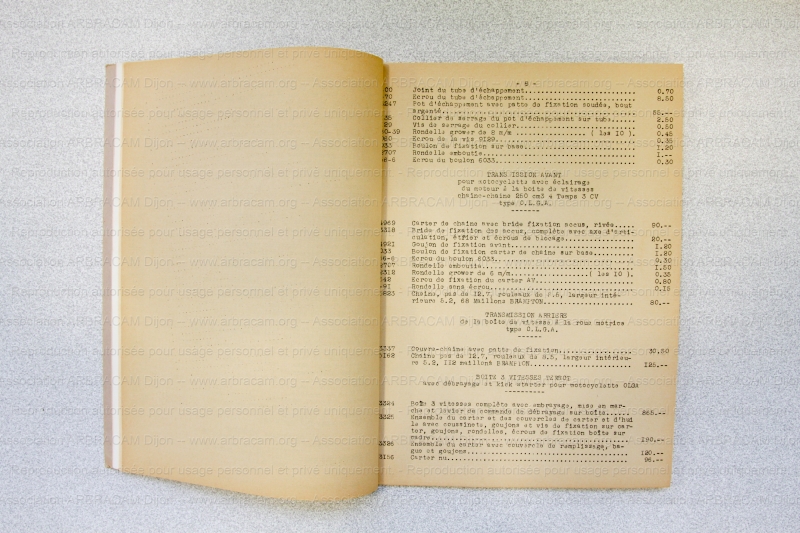 - 8 -
Joint du tube d'échappement 0.70
Ecrou du tube d'échappement 8.50
Pot d'échappement avec patte de fixation soudée, bout
argenté 85.--
Collier de serrage du pot d'échappement sur tube 2.50
Vis de serrage du collier 0.50
Rondelle grower de 8 m/m ( les 10 ). 0.45
Ecrou de la vis 9129 0.35
Boulon de fixation sur base 1.20
Rondelle emboutie 1.--
Ecrou du boulon 6033 0.30
TRANSMISSION AVANT
pour motocyclette avec éclairage
du moteur à la boîte de vitesses
chaîne-chaîne 250 cm3 4 Temps 3 CV
type O.L.G.A.
-------
Carter de chaîne avec bride fixation accus, rivée 90.--
Bride de fixation des accus, complète avec axe d'arti-
culation, étrier et écrous de blocage 20.--
Goujon de fixation avant 1.20
Boulon de fixation carter de chaîne sur base 1.20
Ecrou du boulon 6033 0.30
Rondelle emboutie 1.50
Rondelle grower de 6 m/m ( les 10 ). 0.35
Ecrou de fixation du carter AV 0.80
Rondelle sans écrou 0.15
Chaîne, pas de 12.7, rouleaux de 8.5, largeur inté-
rieure 5.2, 68 Maillons BRAMPTON 80.--
TRANSMISSION ARRIERE
de la boîte de vitesse à la roue motrice
type O.L.G.A.
-------
3337 Couvre-chaîne avec patte de fixation 30.50
Chaîne pas de 12.7, rouleaux de 8.5, largeur intérieu-
re 5.2, 112 maillons BRAMPTON 125.--
BOITE 3 VITESSES
avec débrayage et kick starter pour motocyclette OLGA
---------
3324 Boîte 3 vitesses complète avec embrayage, mise en mar-
che et levier de commande de débrayage sur boîte 865.--
3325 Ensemble du carter et des couvercles de carter et d'hui
le avec coussinets, goujons et vis de fixation sur car-
ter, goujons, rondelles, écrous de fixation boîte sur
cadre 190.--
3326 Ensemble du carter avec couvercle de remplissage, ba-
gue et goujons 120.--
8156 Carter nu 96.--